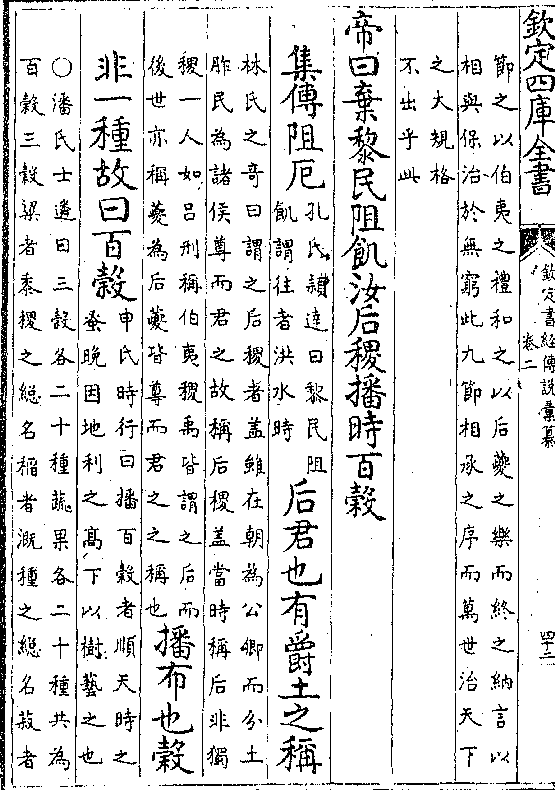 欽定四庫全書
欽定書經傳說彙纂
卷二
四十三
節之以伯夷之禮和之以后夔之樂而終之納言以
相與保治於無窮此九節相承之序而萬世治天下
之大規格
不出乎此
帝曰棄黎民阻飢汝后稷播時百穀
集傳阻厄
孔氏穎達曰黎民阻
飢謂往者洪水時
后君也有爵土之稱
林氏之奇曰謂之后稷者蓋雖在朝為公卿而分土
胙民為諸侯尊而君之故稱后稷蓋當時稱后非獨
稷一人如吕刑稱伯夷稷禹皆謂之后而
後世亦稱夔為后夔皆尊而君之之稱也
播布也穀
非一種故曰百穀
申氏時行曰播百穀者順天時之
蚤晚因地利之髙下以樹藝之也
○潘氏士遴曰三穀各二十種蔬果各二十種共為
百穀三穀粱者黍稷之總名稻者溉種之總名菽者